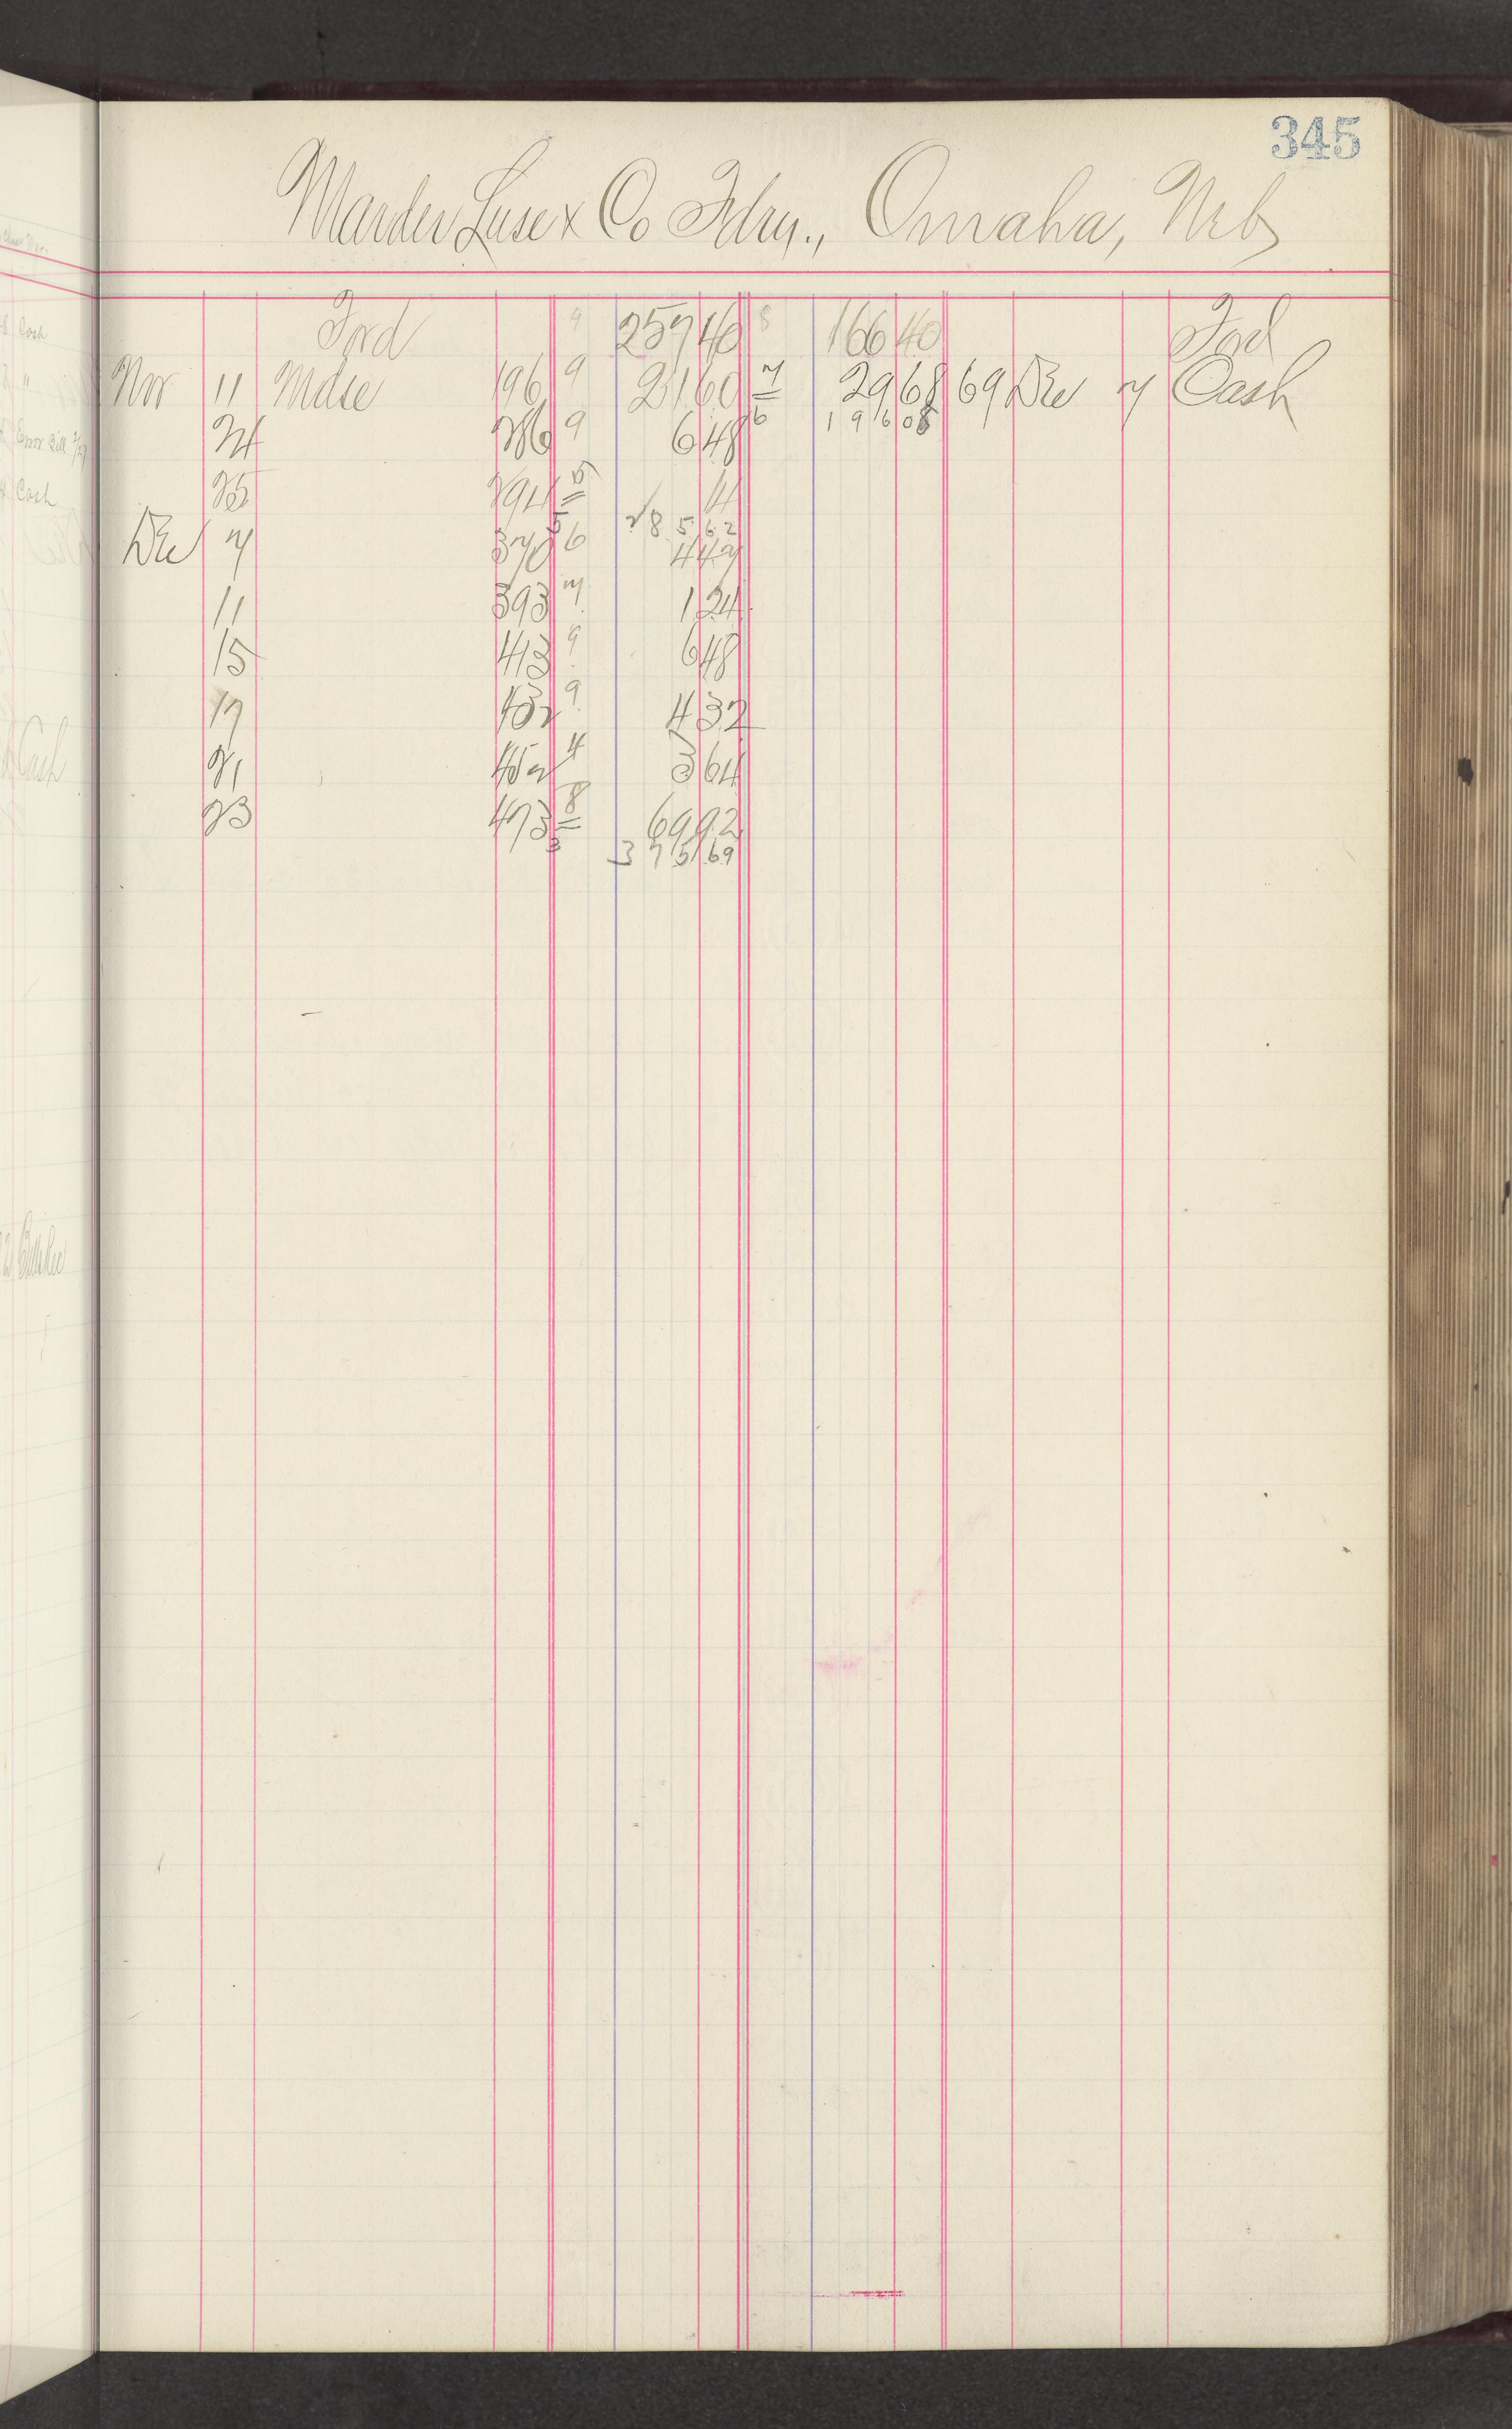 345
Marder Luse & Co Fdry., Omaha, Neb
Fwd 9 257 40 8 166 40 Fwd
Nov 11 Mdse 196 9 21 60 7 29 68 69 Dec 7 Cash
24 286 9 6 48 6 196 08
25 294 5 14
5 285 62
Dec 7 370 6 4 47
11 393 7 1 24
15 413 9 6 48
17 432 9 4 32
21 452 4 3 64
23 473 8 69 92
3 375 69
Cash
"
Error Bill
Cash
Cash